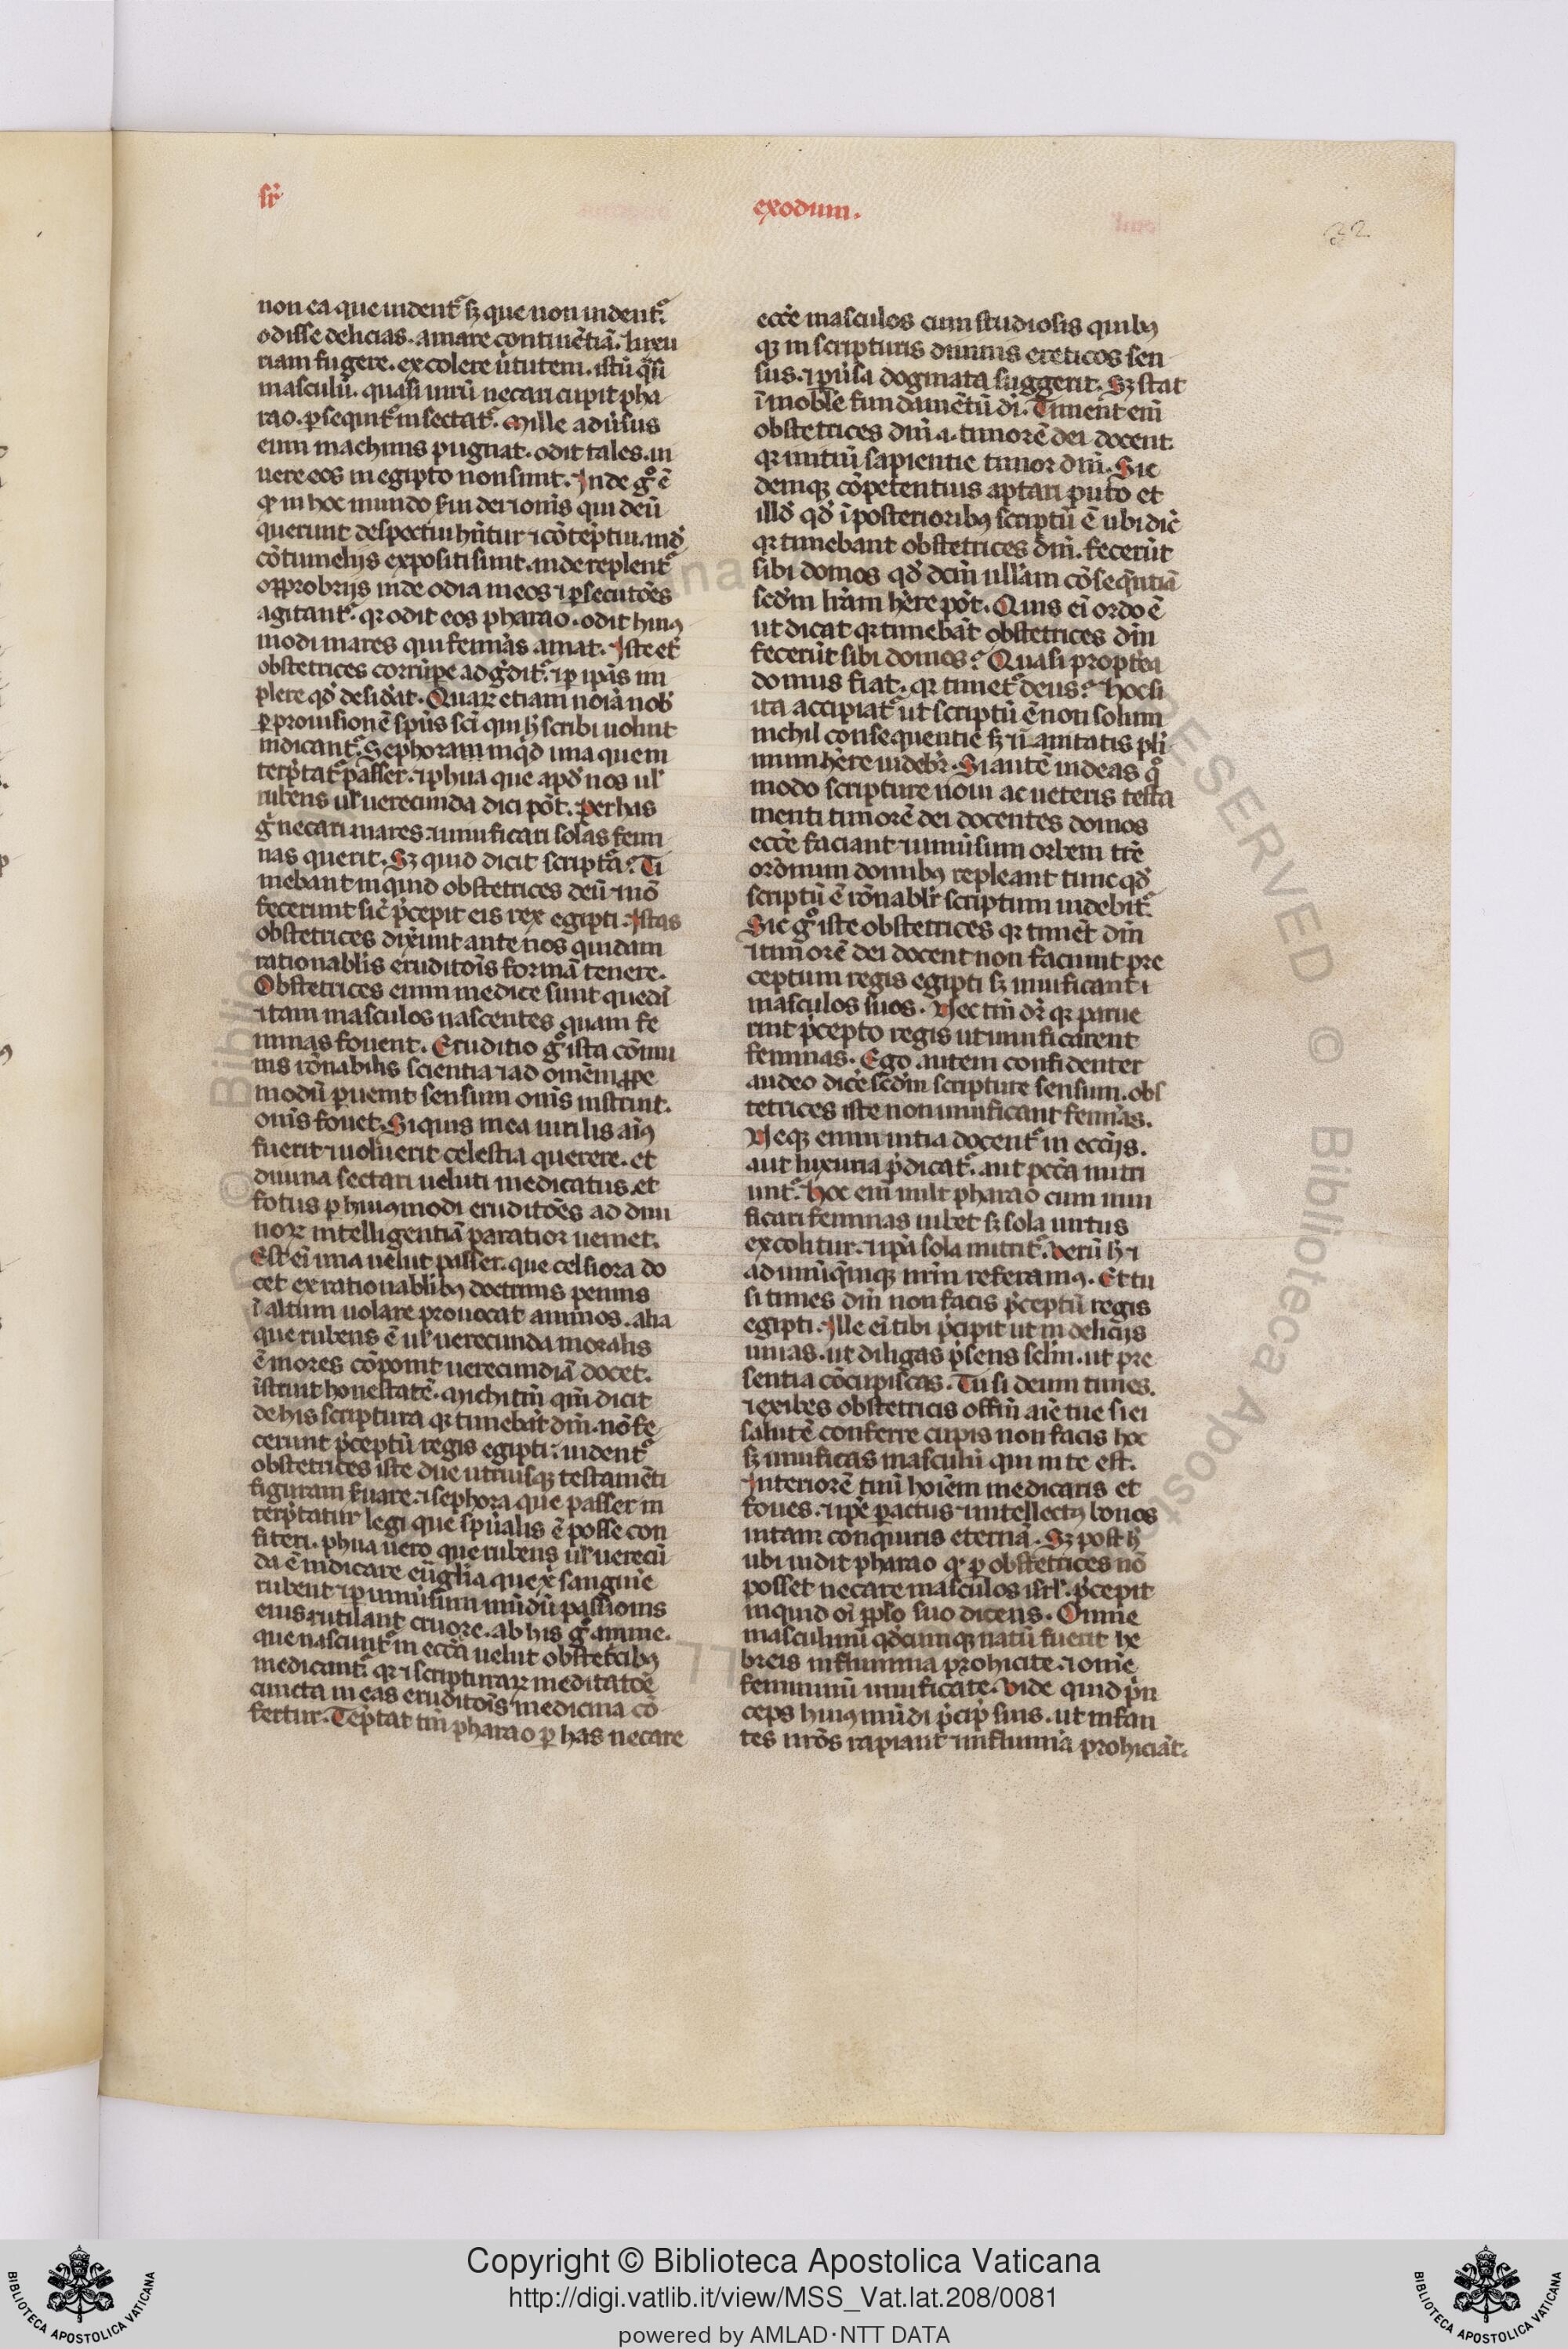 sr̄
exodum.
32
non ea que uident᷑ sꝫ que non uident᷑.
odisse delicias. amare continētiā. luxu
riam fugere. excolere ũtutem. istū q̄si
masculū. quasi uirū necari cupit pha
rao. ꝑsequit᷑ insectat᷑. Mille adũsus
eum machinis pugnat. odit tales. ui
uere eos in egipto non sinit. Inde gͦ ē
ꝙ in hoc mundo ẜui dei
querunt despectui hn̄tur ⁊ cōtēptui. inđ
cōtumeliis expositi sunt. inde replent᷑
opprobriis inde odia in eos ⁊ ꝑsecutōes
agitant᷑. qꝛ odit eos pharao. odit huiꝰ
modi mares qui feminas amat. Iste et̄
obstetrices corrūpe adg̃dit᷑. ⁊ ꝑ ipās im
plere qđ desiđat. Quaꝝ etiam noīa nob̄
ꝑ prouisionē sp̄us sc̄i qui h̄ scribi uoluit
indicant᷑. Sephoram inq̄d una quem
terp̄tat᷑ passer. ⁊ phua que apđ nos ul̄
rubens ul̄ uerecunda dici pōt. Per has
g̃ necari mares ⁊ uiuificari solas femi
nas querit. Sꝫ quid dicit scriptā? Ti
mebant inquid obstetrices deū ⁊ nō
fecerunt sic̄ p̄cepit eis rex egipti. Istas
obstetrices dix̄unt ante nos quidam
rationablis eruditōis formā tenere.
Obstetrices enim medice sunt quedā
⁊ tam masculos nascentes quam fe
minas fouent. Eruditio gͦ ista cōmu
nis rōnabilis scientia ⁊ ad omēm ꝓpe
modū ꝑuenit sensum om̄s instruit.
om̄s fouet. Si quis in ea uirilis aīꝰ
fuerit ⁊ uoluerit celestia querere. et
diuina sectari ueluti medicatus. et
fotus ꝑ huiꝰmodi eruditōes ad diui
noꝝ intelligentiā paratior ueniet.
Est eī una uelut passer. que celsiora do
cet ex rationablibꝰ doctrinis pennis
ī altum uolare prouocat animos. alia
que rubens ē ul̄ uerecunda moralis
ē mores cōponit uerecundiā docet.
īstruit honestatē. Michi tm̄ qm̄ dicit
de his scriptura qꝛ timebāt dm̄. nō fe
cerunt p̄ceptū regis egipti. uident᷑
obstetrices iste due utriusqꝫ testamēti
figuram ẜuare. ⁊ sephora que passer in
terp̄tatur legi que sp̄ualis ē posse con
fiteri. phua uero que rubens ul̄ uerecū
da ē indicare eūglia que x̄ sanguine
rubent ⁊ ꝑ uniũsum mūdū passionis
eius rutilant cruore. ab his gͦ anime.
que nascunt᷑ in ecc̄a uelut obstetricibꝰ
medicant᷑ qꝛ ⁊ scripturaꝝ meditatōe
cuncta in eas eruditōis medicina cō
fertur. Tēptat tm̄ pharao ꝑ has necare
ecc̄e masculos cum studiosis quibꝰ
qꝫ in scripturis diuinis ereticos sen
sus. ⁊ ꝑũsa dogmata suggerit. Sꝫ stat
īmoble fundamētū dī. Timent eīn
obstetrices dm̄ .i. timorē dei docent.
qꝛ initiū sapientie timor dn̄i. Sic
deniqꝫ cōpetentius aptari puto et
illđ qđ ī posterioribꝰ scriptū ē ubi dic̄
qꝛ timebant obstetrices dm̄. fecerūt
sibi domos qđ dcm̄ ullam cōseq̄ntiā
sedm̄ lrām hēre pōt. Quis eī ordo ē
ut dicat qꝛ timebāt obstetrices dm̄
fecerūt sibi domos? Quasi propt̄ea
domus fiat. qꝛ timet᷑ deus? Hoc si
ita accipiat᷑ ut scriptū ē non solum
nichil consequentie sꝫ ⁊ uanitatis pl̄i
mum hēre uidebr̄. Si autē uideas qͦ
modo scripture noui ac ueteris testa
menti timorē dei docentes domos
ecc̄e faciant ⁊ uniũsum orbem tr̄e
or̄onum domibꝰ repleant tunc qđ
scriptū ē rōnablr̄ scriptum uidebit᷑.
Sic gͦ iste obstetrices qꝛ timēt dm̄
⁊ timorē dei docent non faciunt pre
ceptum regis egipti sꝫ uiuificant ⁊
masculos suos. Nec tm̄ dr̄ qꝛ parue
rint p̄cepto regis ut uiuificarent
feminas. Ego autem confidenter
audeo dic̄e sedm̄ scripture sensum. obs
tetrices iste non uiuificant feminas.
Neqꝫ enim uitia docent᷑ in ecc̄iis.
aut luxuria p̄dicat᷑. aut pcc̄a nutri
unt᷑. Hoc eīn uult pharao cum uiui
ficari feminas iubet sꝫ sola uirtus
excolitur. ⁊ ipā sola nutrit᷑. Verū h̄ ⁊
ad unūq̄mqꝫ nrm̄ referamꝰ. Et tu
si times dm̄ non facis p̄ceptū regis
egipti. Ille eī tibi p̄cipit ut in deliciis
uiuas. ut diligas p̄sens sclm̄. ut pre
sentia cōcupiscas. Tu si deum times.
⁊ exibes obstetricis offm̄ aīe tue si ei
salutē conferre cupis non facis hoc
sꝫ uiuificas masculū qui in te est.
Interiorē tuū hoīem medicaris et
foues. ⁊ ipē ꝑ actus ⁊ intellectꝰ bonos
uitam conquiris eternā. Sꝫ post h̄
ubi uidit pharao ꝙ ꝑ obstetrices nō
posset necare masculos isrl̄. p̄cepit
inquid oī pplo suo dicens. Omne
masculinū qđcumqꝫ natū fuerit he
breis in flumina prohicite. ⁊ omne
femininū uiuificate. Vide quid p̄n
ceps huiꝰ mūdi p̄cip̄ suis. ut infan
tes nrōs rapiant ⁊ in flumina prohiciāt.